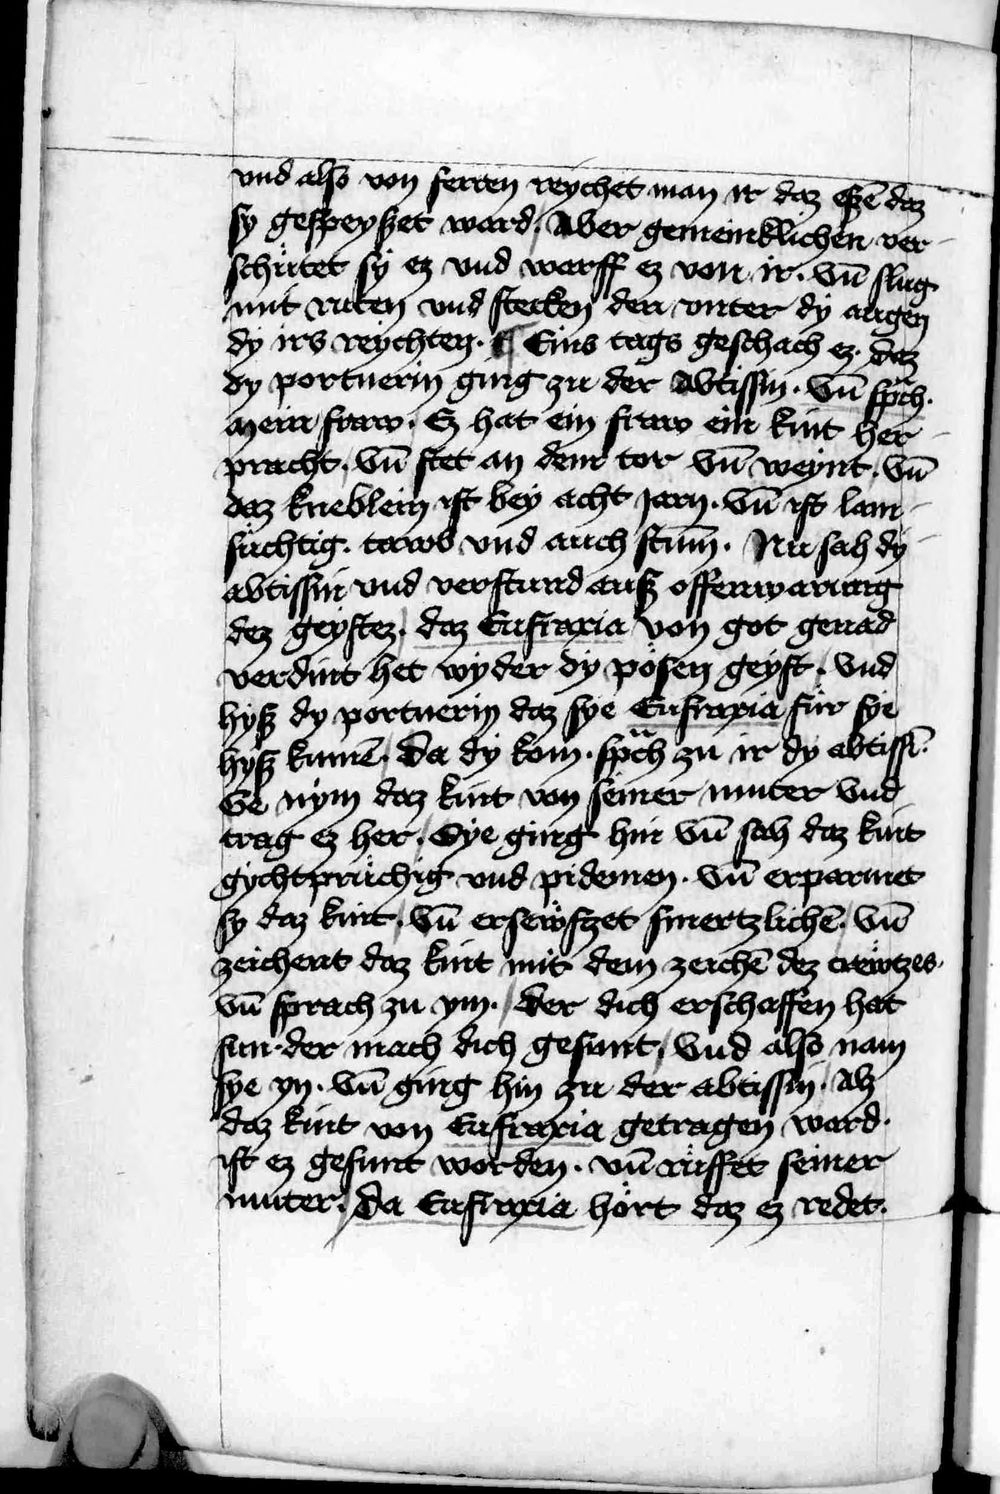 vnd also von ferren reychet man ir daz eße̅ daz
sy gespeyßet ward. Aber gemeinklichen ver-
schütet sy ez vnd warff ez von ir. vn̅ slug
mit ruten vnd stecken den vnter dy augen
dy irs reychten. ¶ Eins tags geschach ez. daz
dy portnerin ging zu der abtissin. vn̅ spͣch.
Mein fraw. Ez hat ein fraw ein kint her-
pracht. vn̅ stet an dem tor vn̅ weynt. vn̅
daz kneblein ist bey acht jarn. vn̅ ist lam-
süchtig. tawb vnd auch stum̅. Nu sah dy
abtissin vnd verstund auß offenwarung
dez geystez. daz Eufraxia von got genad
verdint het wyder dy pösen geyst. vnd
hyß dy portnerin daz sye Eufraxia für sye
hyß kume̅. Da dy kom. spͣch zu ir dy abtissi̅.
Ge nym daz kint von seiner muter vnd
trag ez her. Sye ging hin vn̅ sah daz kint
gychtprüchig vnd pidemen. vn̅ erparmet
sy daz kint. vn̅ ersewfzet smertzliche̅. vn̅
zeichent daz kint mit dem zeiche̅ dez crewtzes.
vn̅ sprach zu ym. der dich erschaffen hat
sun. der mach dich gesunt. vnd also nam
sye yn. vn̅ ging hin zu der abtissin. Alz
daz kint von Eufraxia getragen ward.
ist ez gesunt worden. vn̅ rüffet seiner
muter. Da Eufraxia hört daz ez redet.